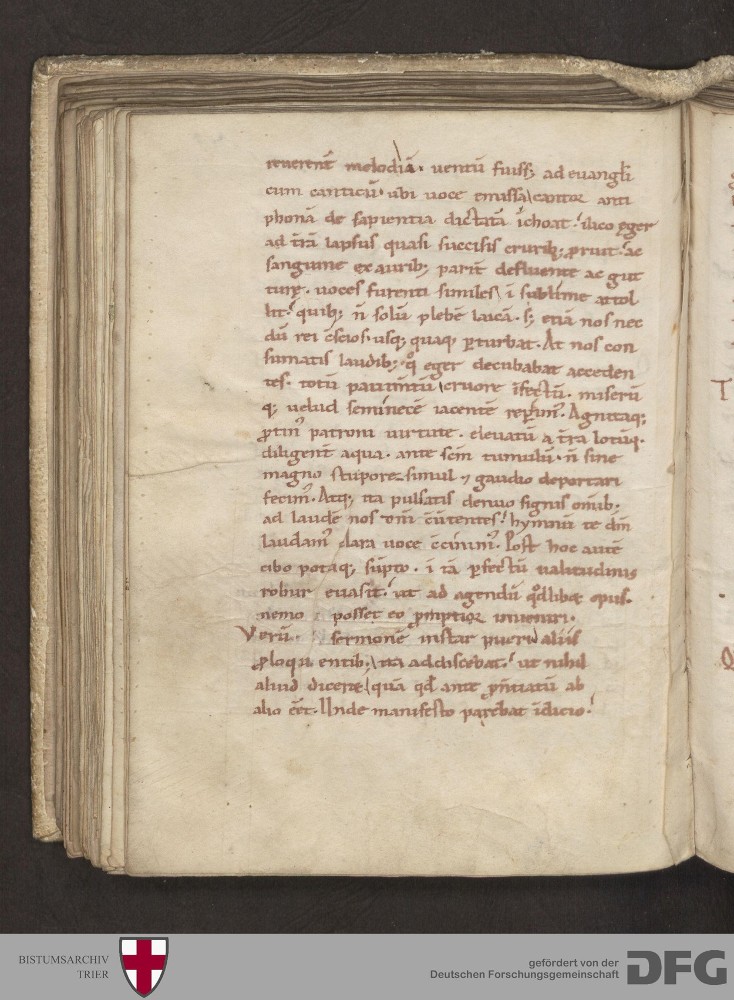 reuerent̄ melodiā. uentū fuiss; ad euangl̄i
cum canticū. ubi uoce emissa cantor anti
phonā de sapientia dictatā īchoat. ilico ęger
ad t̄rā lapsus quasi succisis crurib; ꝓruit. ac
sanguine ex aurib; parit̄ defluente ac gut
turę. uoces furenti similes ī sublime attol
lit. quib; n̄ solū plebē laicā. s; etiā nos nec
dū rei c̄scios. usq; quaq; ꝑturbat. At nos con
sumatis laudib; qͦ eger decubabat acceden
tes. totū pauim̄tū cruore īfectū. miserū
q; uelud seminecē iacentē reꝑim᷒. Agnitaq;
ꝓtin᷒ patroni uirtute. eleuatū a t̄ra lotūq.
diligent̄ aqua. ante sc̄m tumulū. n̄ sine
magno stupore simul ⁊ gaudio deportari
fecim᷒. Atq; ita pulsatis denuo signis om̄ib;
ad laudē nos dn̄i c̄uertentes. hymnū te dm̄
laudam᷒ clara uoce c̄cinim᷒. Post hoc autē
cibo potaq; sūpto. ī tā ꝑfectū ualitudinis
robur euasit. ut ad agendū qͦdlibet opus.
nemo posset eo ꝓmptior inueniri.
Verū sermonē instar pueri aliis
ꝓloquentib; ita addiscebat. ut nihil
aliud dicere quā qd̄ ante ꝓn̄tiatū ab
alio eēt. Unde manifesto parebat īdicio.
BISTUMSARCHIV
TRIER
gefördert von der
Deutschen Forschungsgemeinschaft
DFG